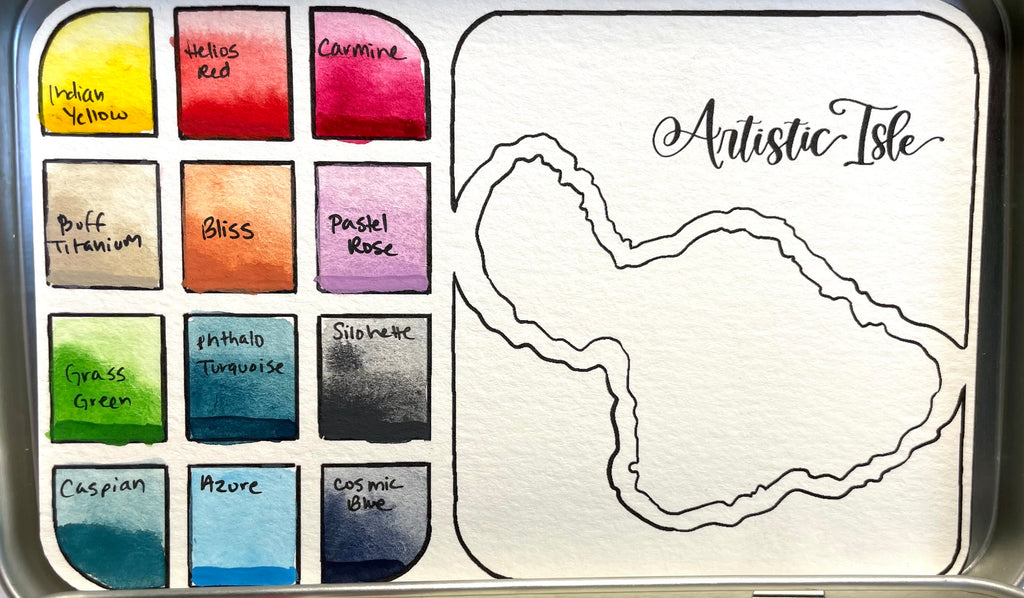 Indian
Yellow
Helios
Red
Carmine
Buff
Titanium
Bliss
Pastel
Rose
Grass
Green
phthalo
Turquoise
Silohette
Caspian
Azure
cosmic
Blue
Artistic Isle